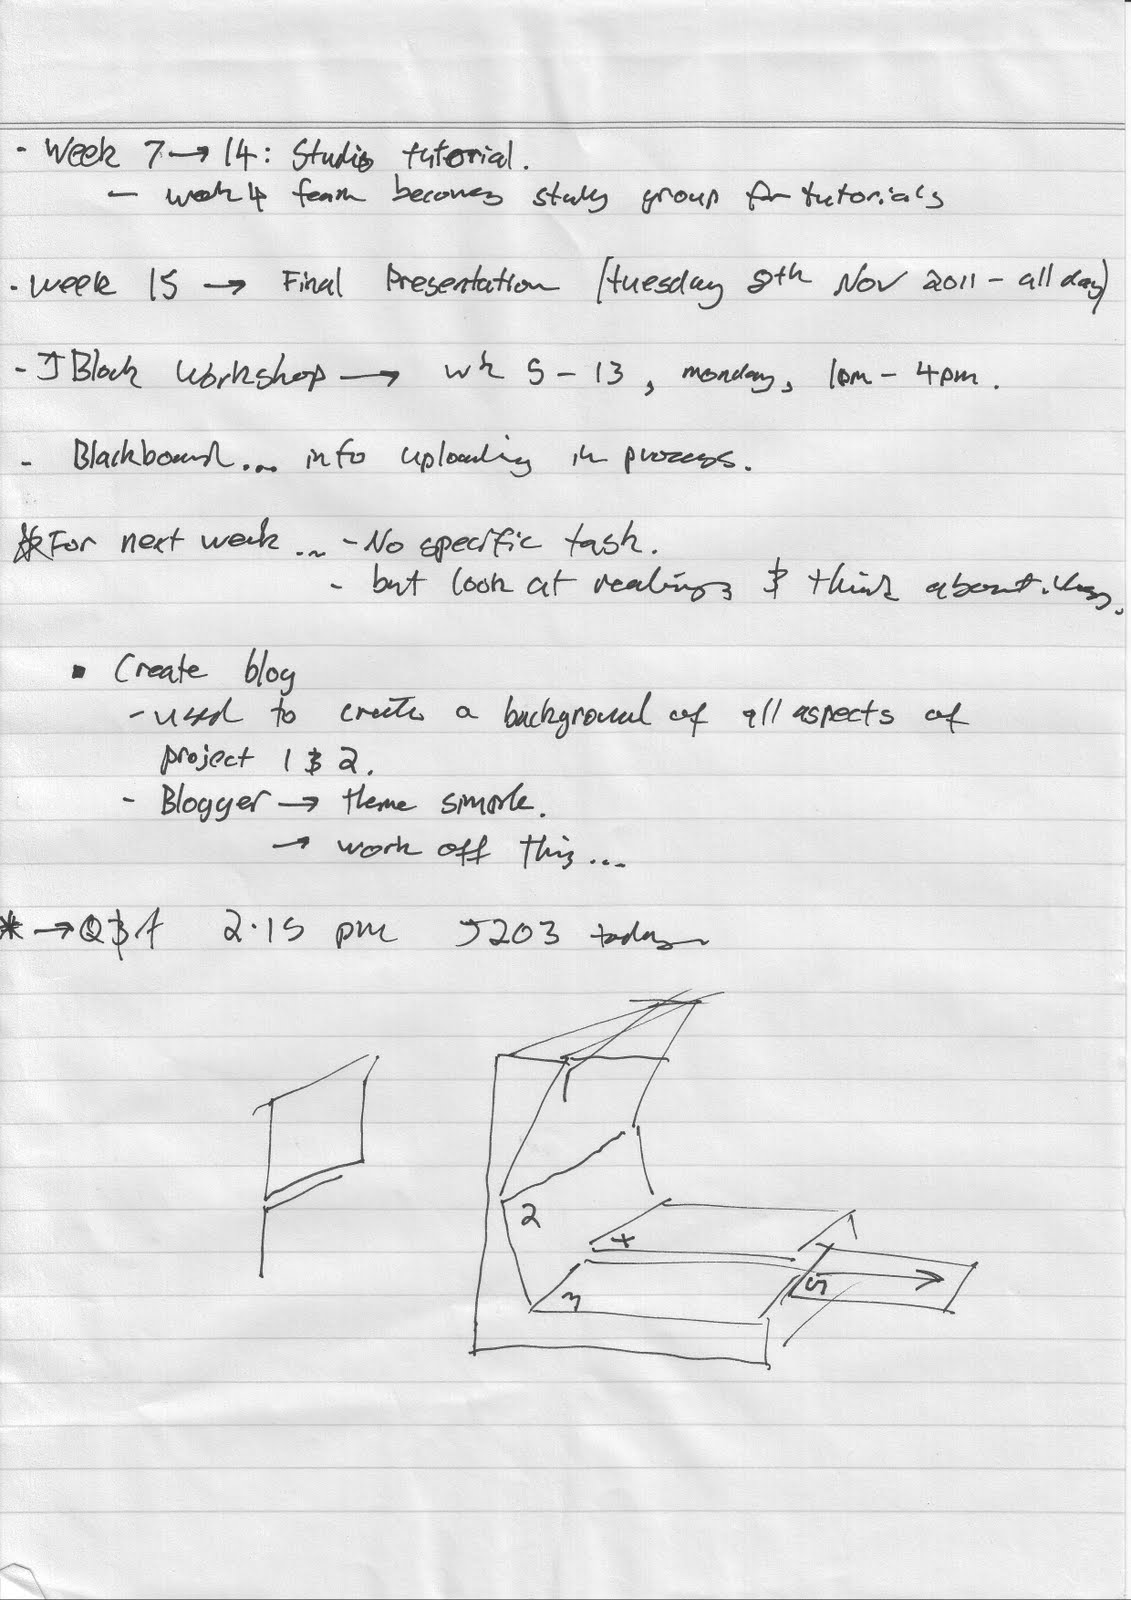 - Week 7 → 14: Studio tutorial.
- week 4 team becomes study group for tutorials
- Week 15 → Final Presentation (tuesday 8th Nov 2011 - all day)
- J Block Workshop → wk 5 - 13, monday, 1pm - 4pm.
- Blackboard... info uploading in process.
* For next week... - No specific task.
- but look at readings & think about
▪ Create blog
- used to create a background of all aspects of
project 1 & 2.
- Blogger → theme simple.
→ work off this...
* → Q&A 2.15 pm J203 today
2
3
5